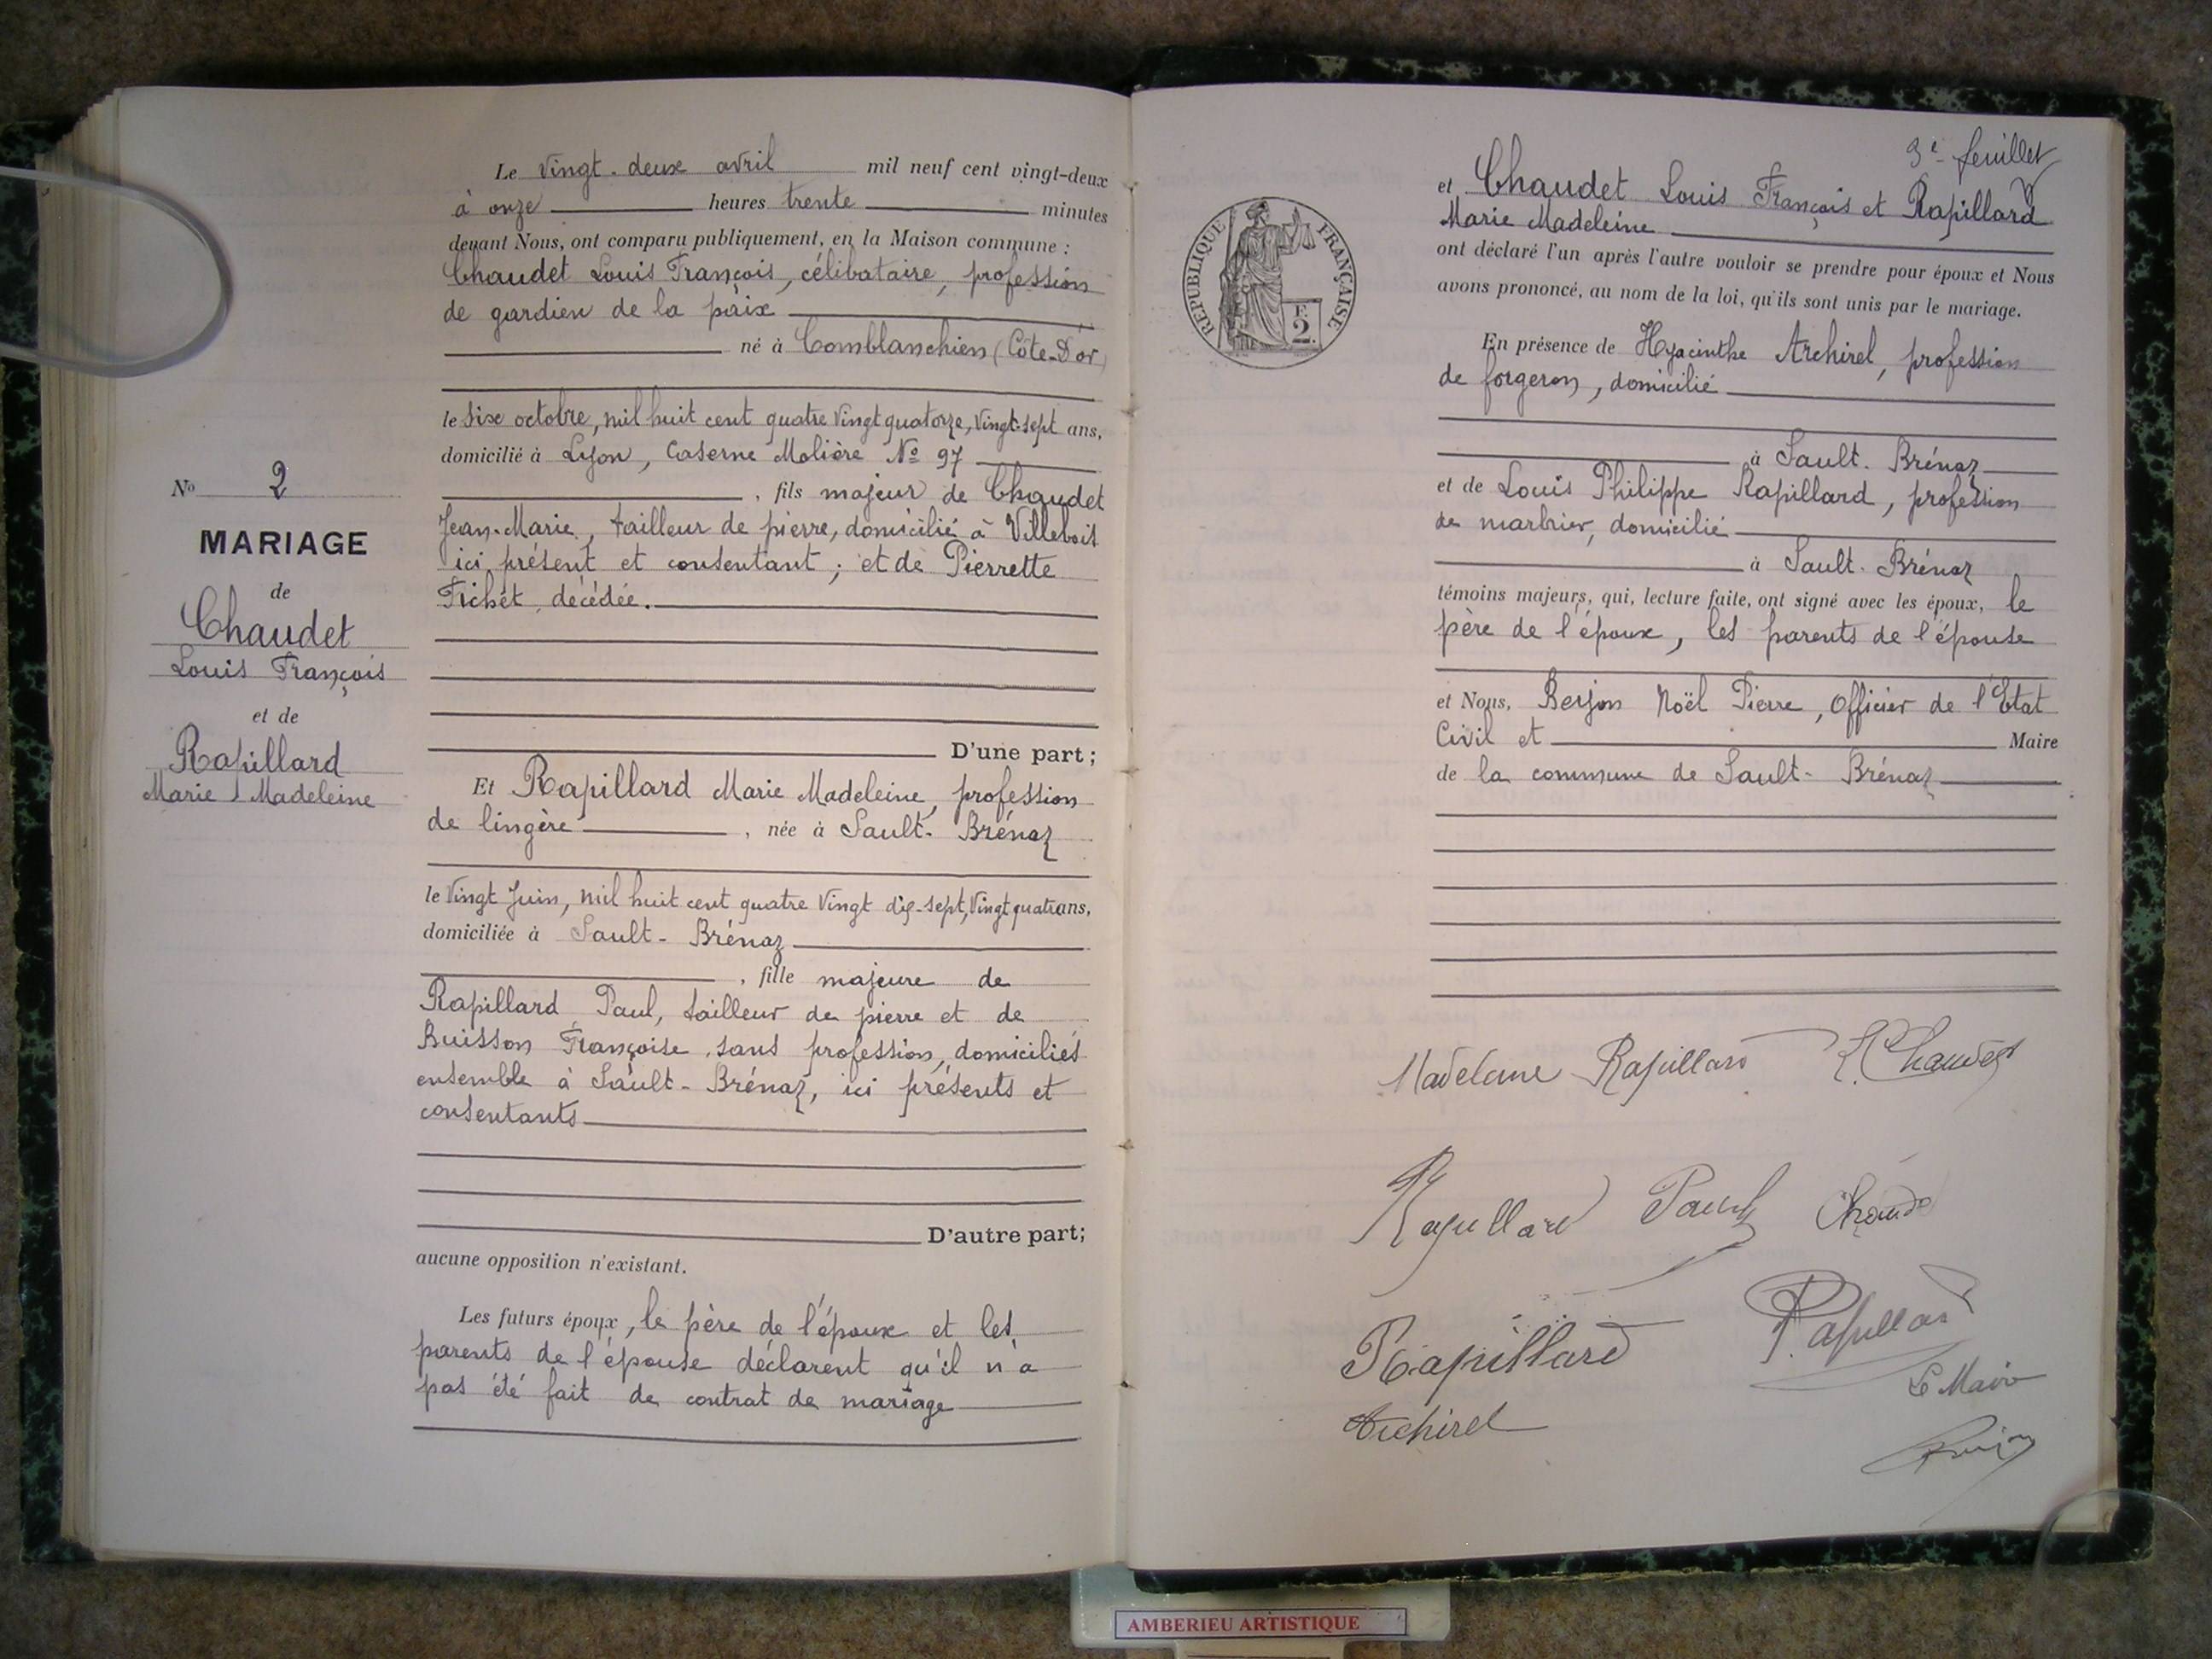 Le vingt-deux avril mil neuf cent vingt-deux
à onze heures trente minutes
devant Nous, ont comparu publiquement, en la Maison commune :
Chaudet Louis François, célibataire, profession
de gardien de la paix
né à Comblanchien (Côte-D'or)
le six octobre, mil huit cent quatre vingt quatorze, vingt-sept ans,
domicilié à Lyon, Caserne Molière No 97
, fils majeur de Chaudet
Jean-Marie, tailleur de pierre, domicilié à Villebois
ici présent et consentant ; et de Pierrette
Fichet, décédée.
D'une part ;
Et Rapillard Marie Madeleine, profession
de lingère, née à Sault-Brénaz
le vingt Juin, mil huit cent quatre vingt dix-sept, vingt quatre ans,
domiciliée à Sault-Brénaz
, fille majeure de
Rapillard Paul, tailleur de pierre et de
Buisson Françoise, sans profession, domiciliés
ensemble à Sault-Brénaz, ici présents et
consentants
D'autre part;
aucune opposition n'existant.
Les futurs époux, le père de l'époux et les
parents de l'épouse déclarent qu'il n'a
pas été fait de contrat de mariage
No 2
MARIAGE
de
Chaudet
Louis François
et de
Rapillard
Marie Madeleine
3e feuillet
RÉPUBLIQUE FRANÇAISE
F.
2.
et Chaudet Louis François et Rapillard
Marie Madeleine
ont déclaré l'un après l'autre vouloir se prendre pour époux et Nous
avons prononcé, au nom de la loi, qu'ils sont unis par le mariage.
En présence de Hyacinthe Archirel, profession
de forgeron, domicilié
à Sault-Brénaz
et de Louis Philippe Rapillard, profession
de marbrier, domicilié
à Sault-Brénaz
témoins majeurs, qui, lecture faite, ont signé avec les époux, le
père de l'époux, les parents de l'épouse
et Nous, Berjon Noël Pierre, Officier de l'Etat
Civil et Maire
de la commune de Sault-Brénaz
Madeleine Rapillard L. Chaudet
Rapillard Paul Chaudet
Rapillard P. Rapillard
Le Maire
Archirel
AMBERIEU ARTISTIQUE